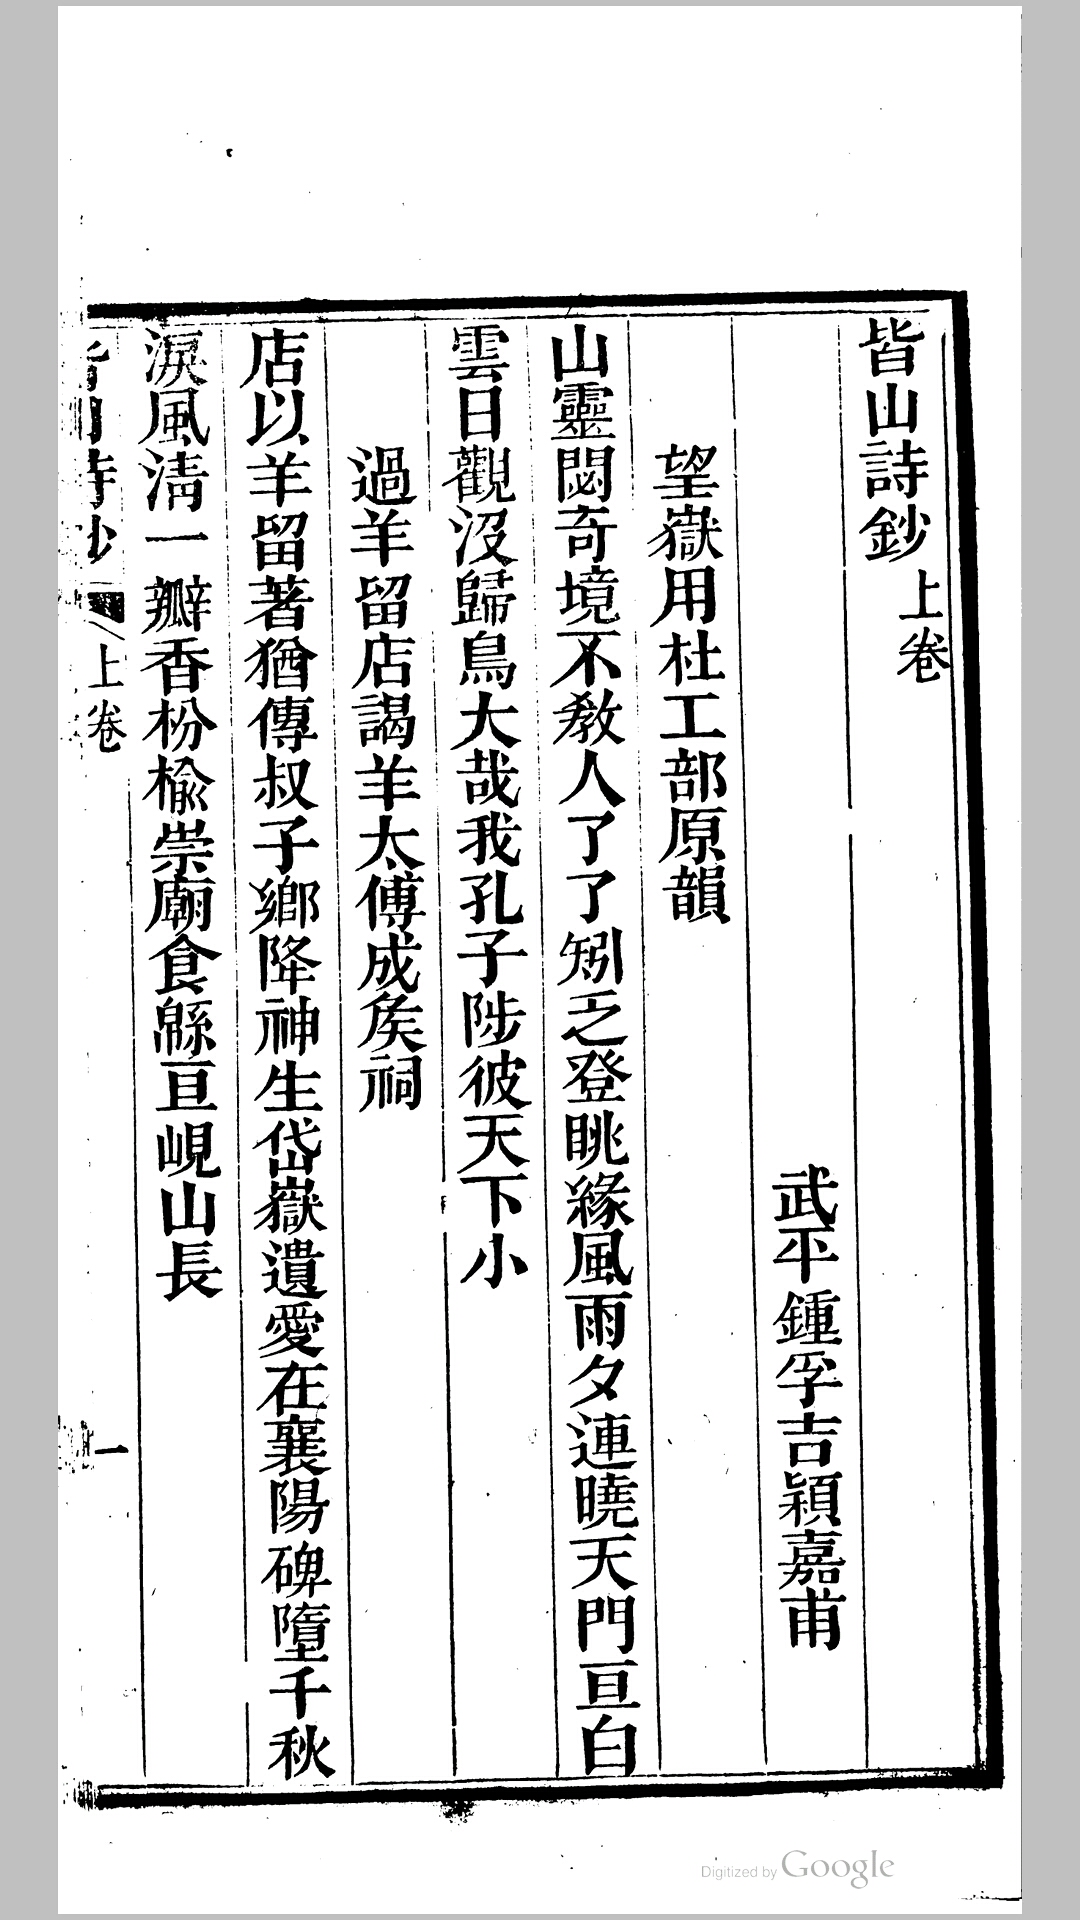 皆山詩鈔上卷
武平鍾孚吉穎嘉甫
望嶽用杜工部原韻
山靈閟奇境不敎人了了矧乏登眺緣風雨夕連曉天門亘白
雲日觀沒歸鳥大哉我孔子陟彼天下小
過羊留店謁羊太傅成矦祠
店以羊留著猶傳叔子鄉降神生岱嶽遺愛在襄陽碑墮千秋
淚風淸一瓣香枌楡崇廟食緜亘峴山長
皆山詩鈔 上卷 一
Digitized by Google